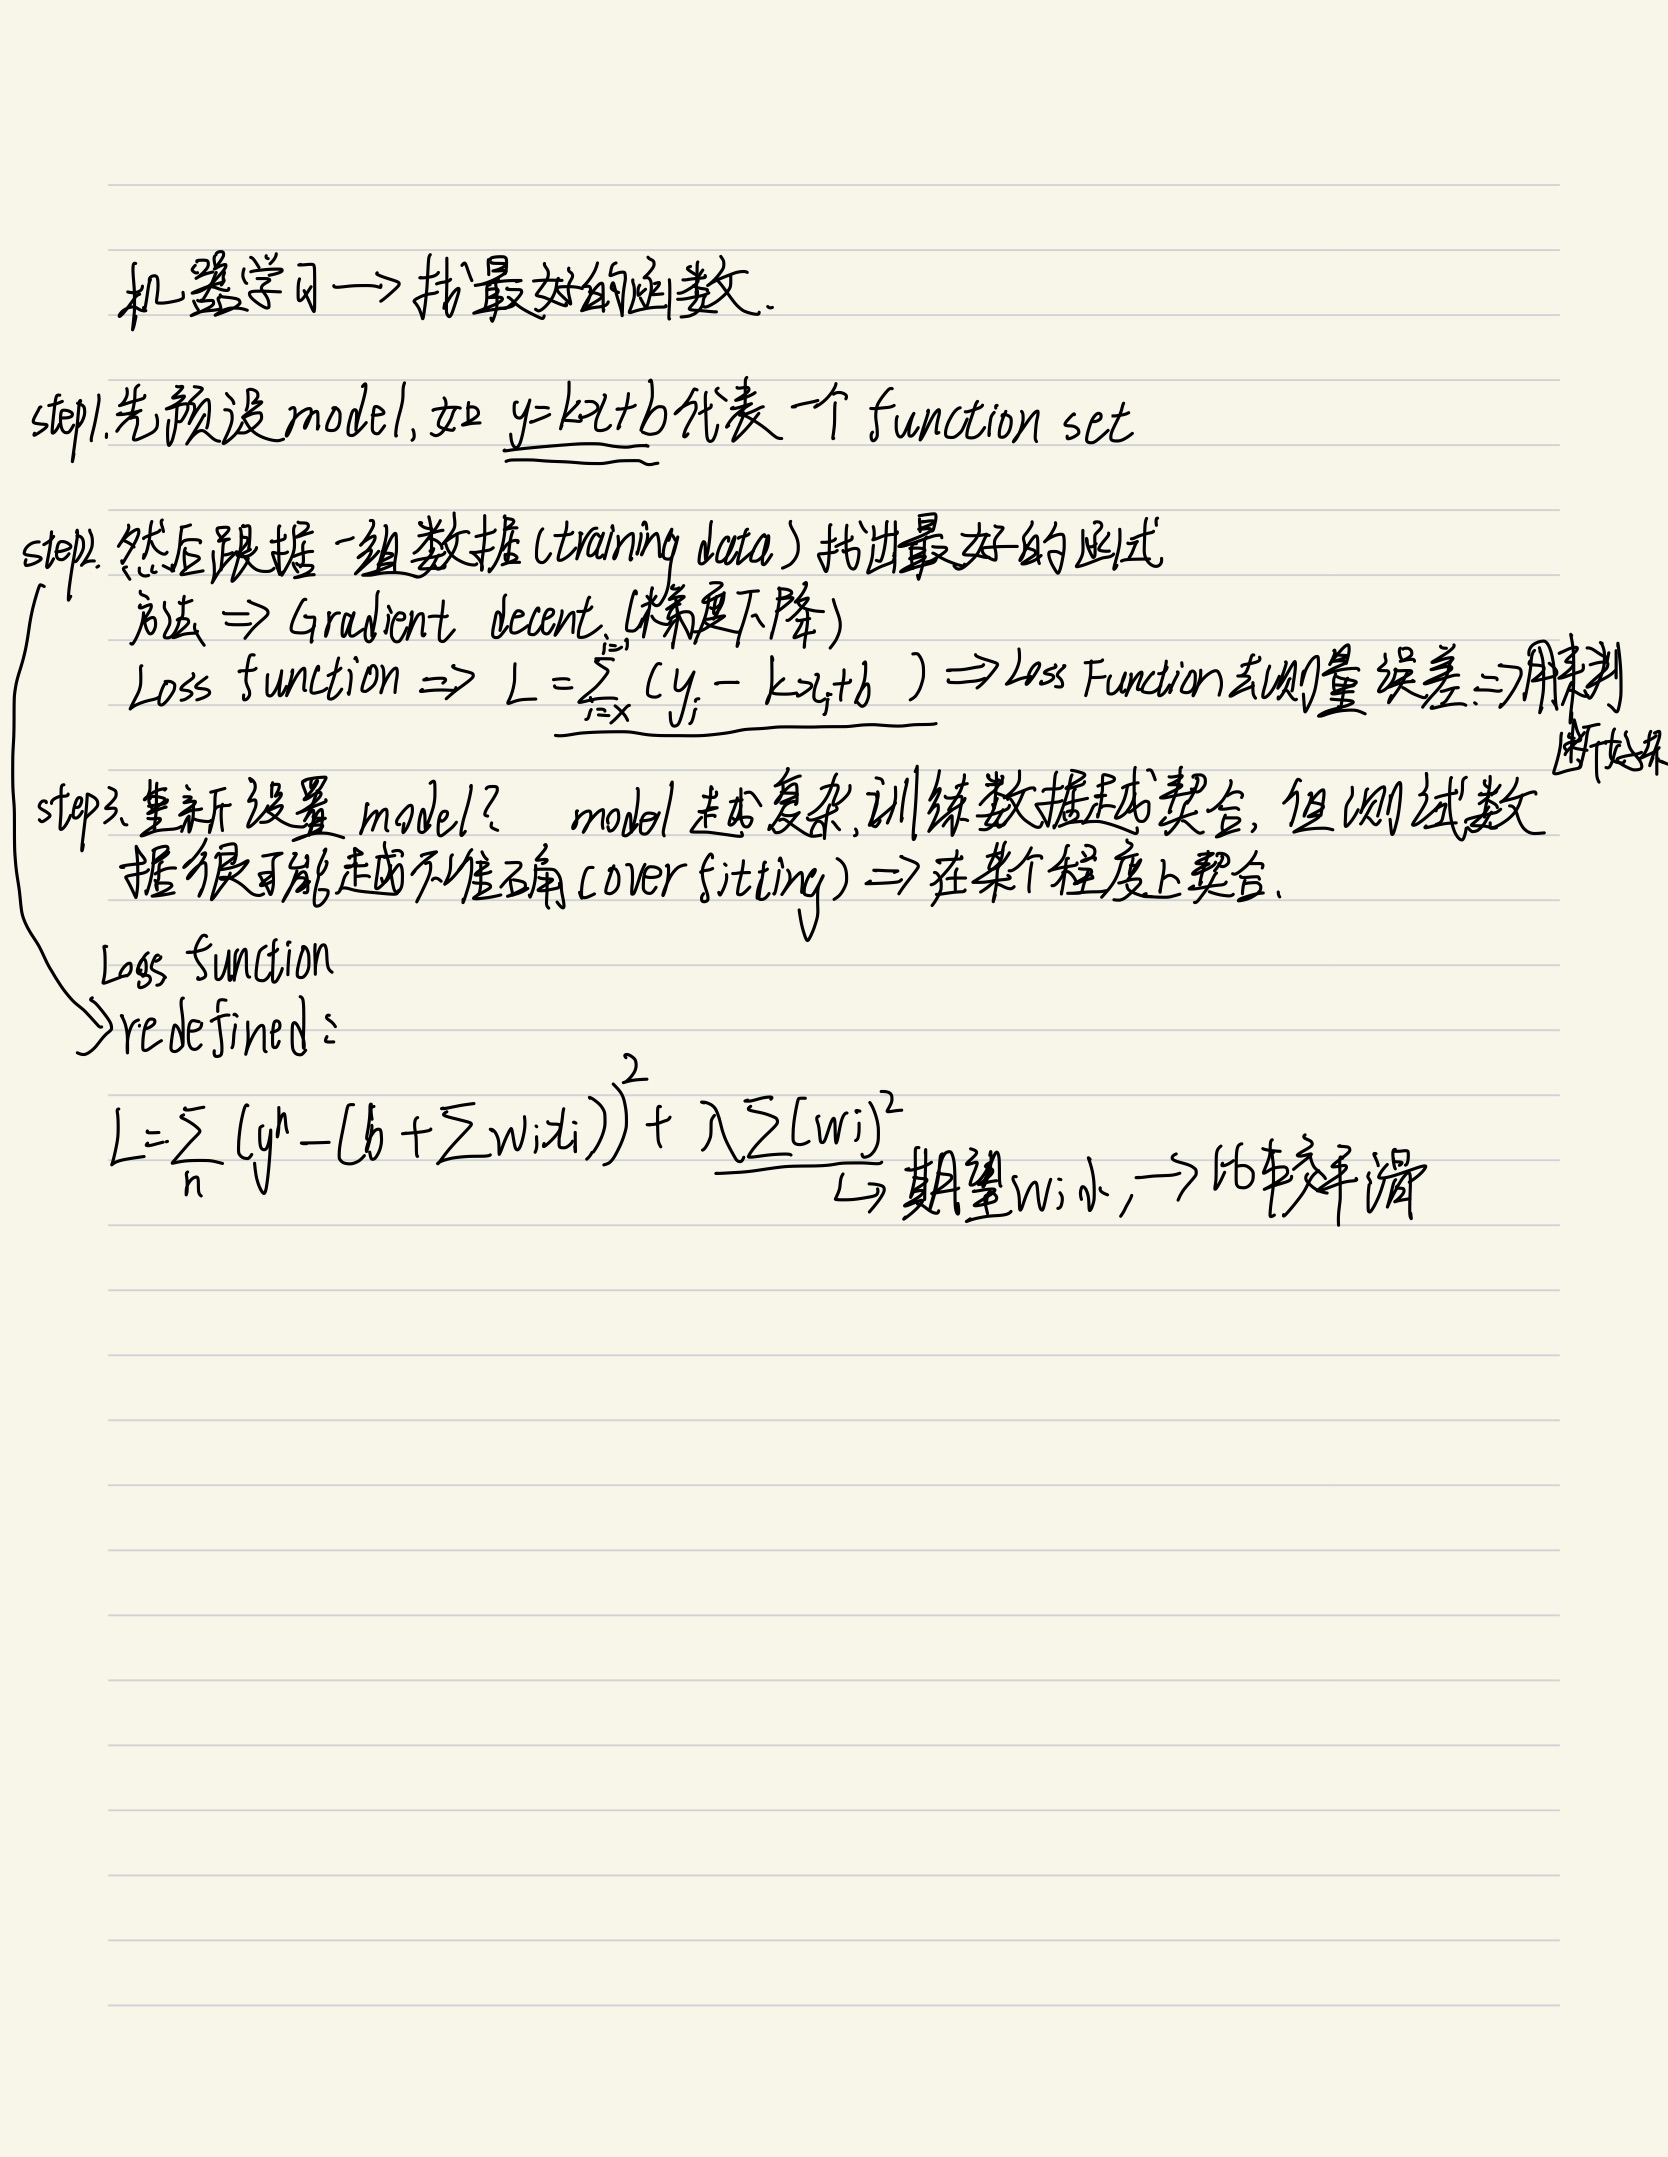 机器学习→找最好的函数.
step1.先预设model,如 y=kx+b代表一个function set
step2.然后跟据一组数据(training data)找出最好的函式
方法⇒Gradient decent.(梯度下降)
Loss function ⇒ L=∑(yi - kxi+b ) ⇒Loss Function去测量误差⇒用来判
i=1
i=x
断好坏
step3.重新设置 model? model越复杂,训练数据越契合,但测试数
据很可能越不准确(over fitting)⇒在某个程度上契合.
Loss function
redefined:
L=∑(yⁿ-(b+∑wixi))²+λ∑(wi)²
n
↳期望wi小,→比较平滑